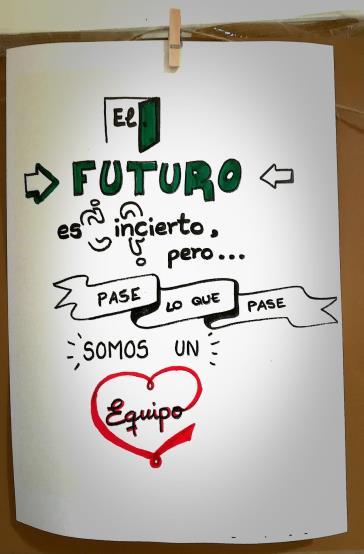 El
FUTURO
es incierto,
pero...
PASE LO QUE PASE
SOMOS UN
Equipo